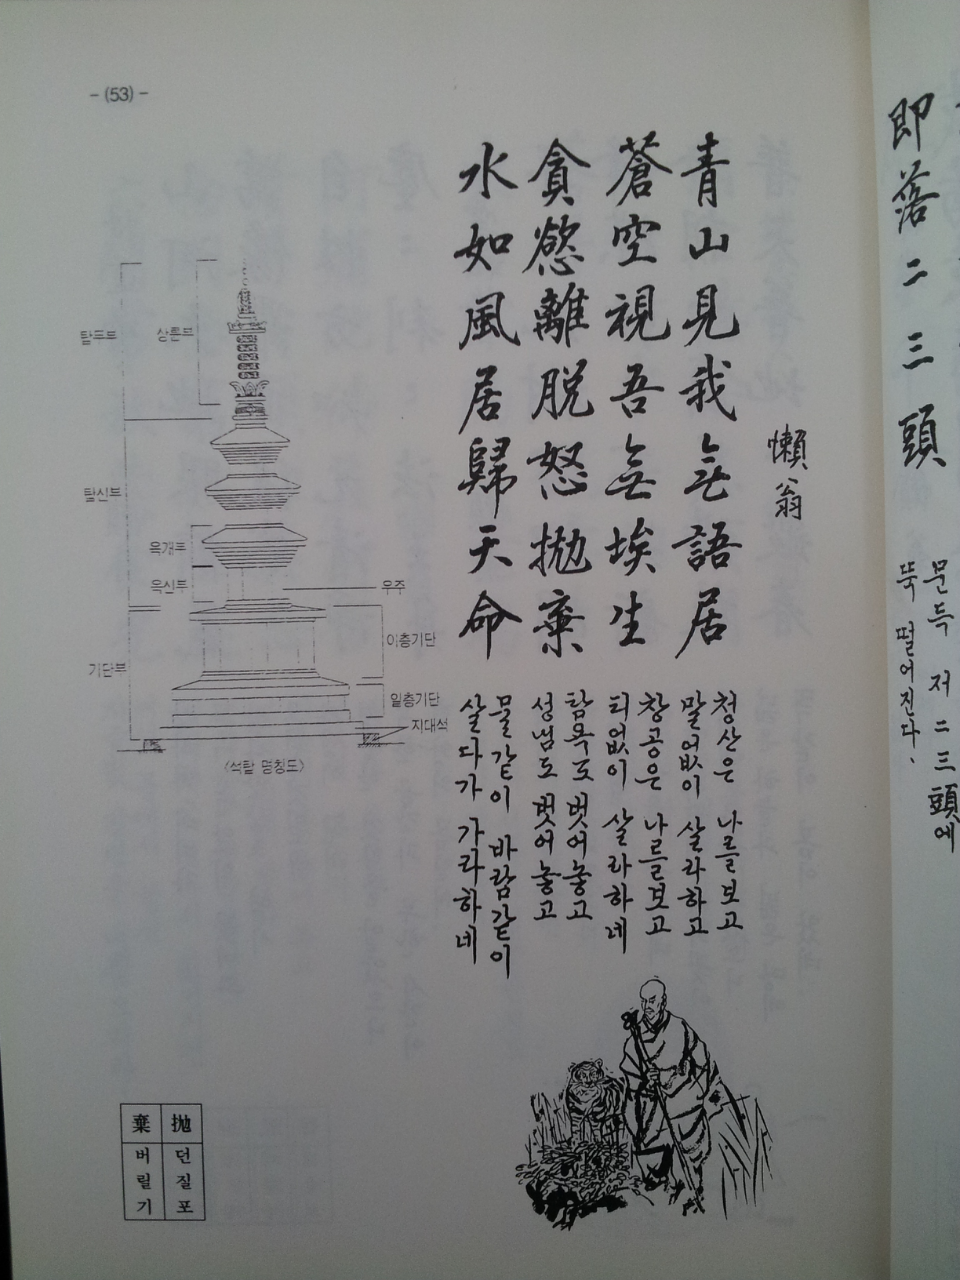 - (53) -
懶翁
青山見我無語居
蒼空視吾無埃生
貪慾離脫怒抛棄
水如風居歸天命
청산은 나를보고
말없이 살라하고
창공은 나를보고
티없이 살라하네
탐욕도 벗어놓고
성냄도 벗어놓고
물같이 바람같이
살다가 가라하네
탑두부
상륜부
탑신부
옥개부
옥신부
우주
이층기단
기단부
일층기단
지대석
<석탑 명칭도>
抛 던질 포
棄 버릴 기
即落二三頭
문득 저 二三頭에
뚝 떨어진다.